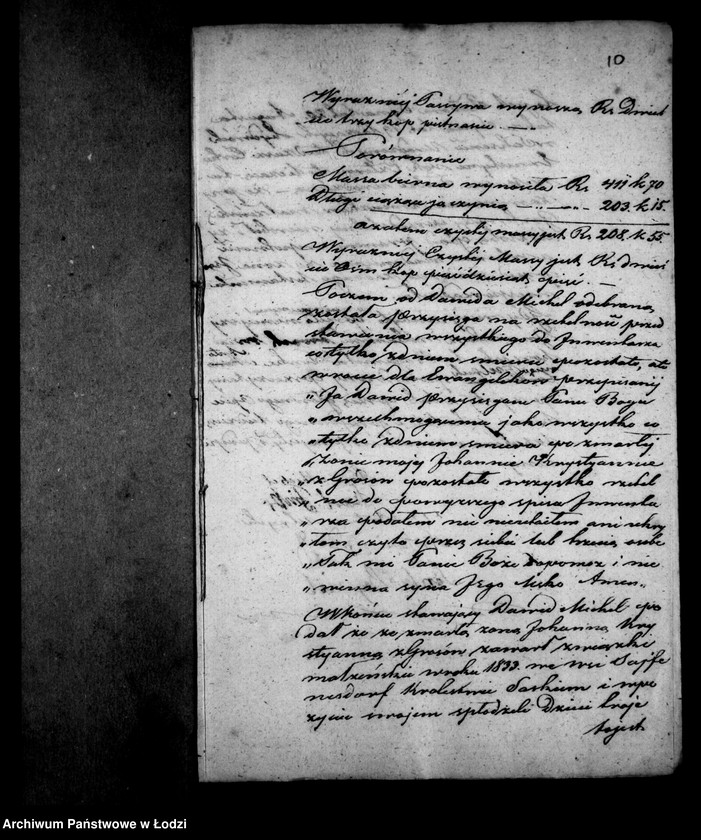 10
Wyraźniéj Passywa wynoszą Rs. Dwieś
cie trzy kop. piętnaście. —
Porównanie
Massa bierna wynosiła Rs. 411 k 70
Długi ciążące ją czynią — 203. k 15.
a zatem czystéj massy jest Rs. 208. k 55.
Wyraźniéj Czystéj Massy jest Rs. dwieś
cie Ośm kop. pięćdziesiąt pięć. —
Poczem od Dawida Michel odebraną
została przysięga na rzetelność przed
stawienia wszystkiego do Inwentarza
co tylko z dniem śmierci pozostało, a to
w rocie dla Ewangelików przepisanéj
„Ja Dawid przysięgam Panu Bogu
„wszechmogącemu jako wszystko co
„tylko z dniem śmierci po zmarłéj
„żonie mojéj Johannie Krystyannie
„z Grosów pozostało wszystko rzetel
„nie do powyższego spisu Inwenta
„rza podałem nic nieutaiłem ani skry
„łem, czyto przez siebie lub trzecią osobę
„Tak mi Panie Boże dopomóż i nie
„winna syna Jego Męko Amen„
W końcu stawający Dawid Michel po
dał że ze zmarłą żoną Johanną Kry
styanną z Grosów zawarł związki
małżeńskie w roku 1833. we wsi Saffe
nsdorf Królestwie Saskiem i w po
życiu swojem spłodzili Dzieci troje
to jest
Archiwum Państwowe w Łodzi